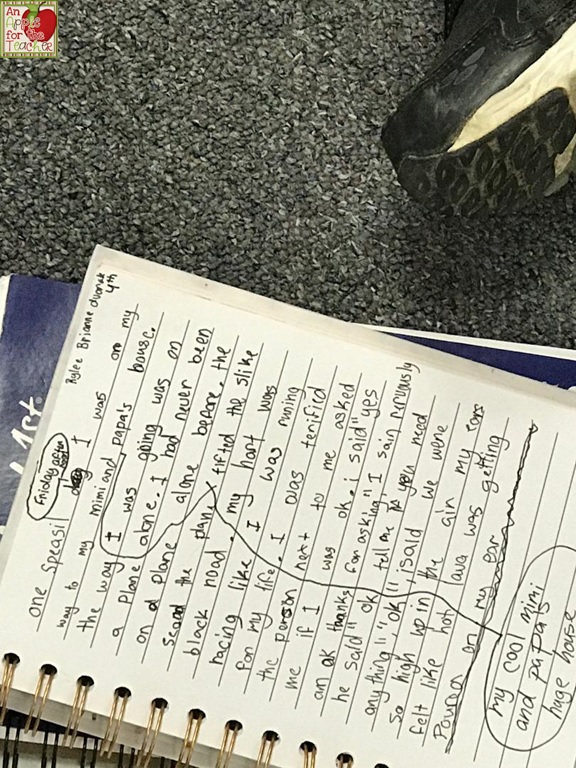 An
Apple
for the
Teacher
1st
Rylee Brianne dvorak
4th
one Speasil Friday I was on my
way to my mimi and papa's house.
the way I was going was on
a plane alone. I had never been
on a plane alone before. the
scared the plan tifted the slike
black road. my hart was
racing like I was runing
for my life. I was terifird
the person next to me asked
me if I was ok. i said "yes
am ok thanks for asking"
he said" ok tell me if you need
anything", "ok", I sain nervusly
so high up in the air my ears
felt like hot lava was getting
Pourn on my ear
my cool mimi
and papa's
huge house